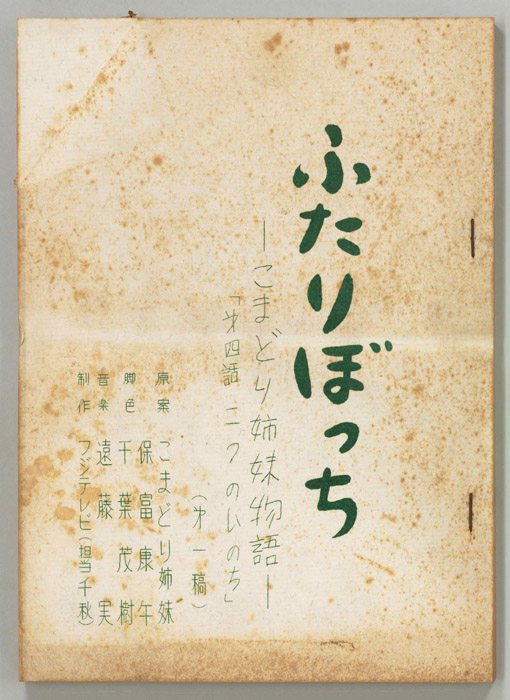 ふたりぼっち
―こまどり姉妹物語―
「才四話 二つのいのち」
(才一稿)
原案 こまどり姉妹
脚色 保富康午
千葉茂樹
音楽 遠藤実
制作 フジテレビ(担当千秋)